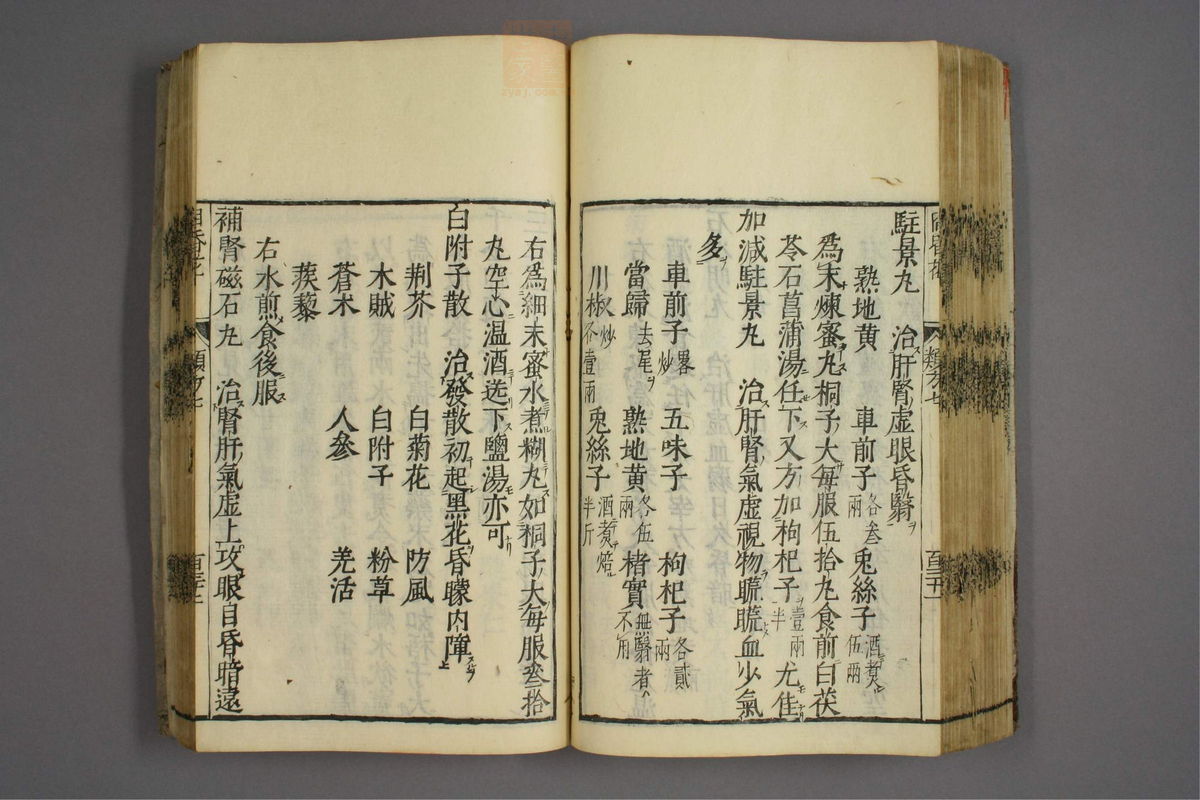 駐景丸　治肝腎虚眼昏翳
熟地黄　車前子各叁兩　兎絲子酒煮伍兩
為末煉蜜丸桐子大每服伍拾丸食前白茯
苓石菖蒲湯任下又方加枸杞子壹兩半尤佳
加減駐景丸　治肝腎氣虚視物䀮䀮血少氣
多
車前子畧炒　五味子　枸杞子各貳兩
當歸去尾　熟地黄各伍兩　楮實無翳者不用
川椒炒壹兩　兎絲子酒煮焙半斤
右為細末蜜水煮糊丸如桐子大每服叁拾
丸空心温酒送下鹽湯亦可
白附子散　治發散初起黒花昏矇内障
荆芥　白菊花　防風
木賊　白附子　粉草
蒼术　人參　羌活
蒺藜
右水煎食後服
補腎磁石丸　治腎肝氣虚上攻眼目昏暗遠
類方七